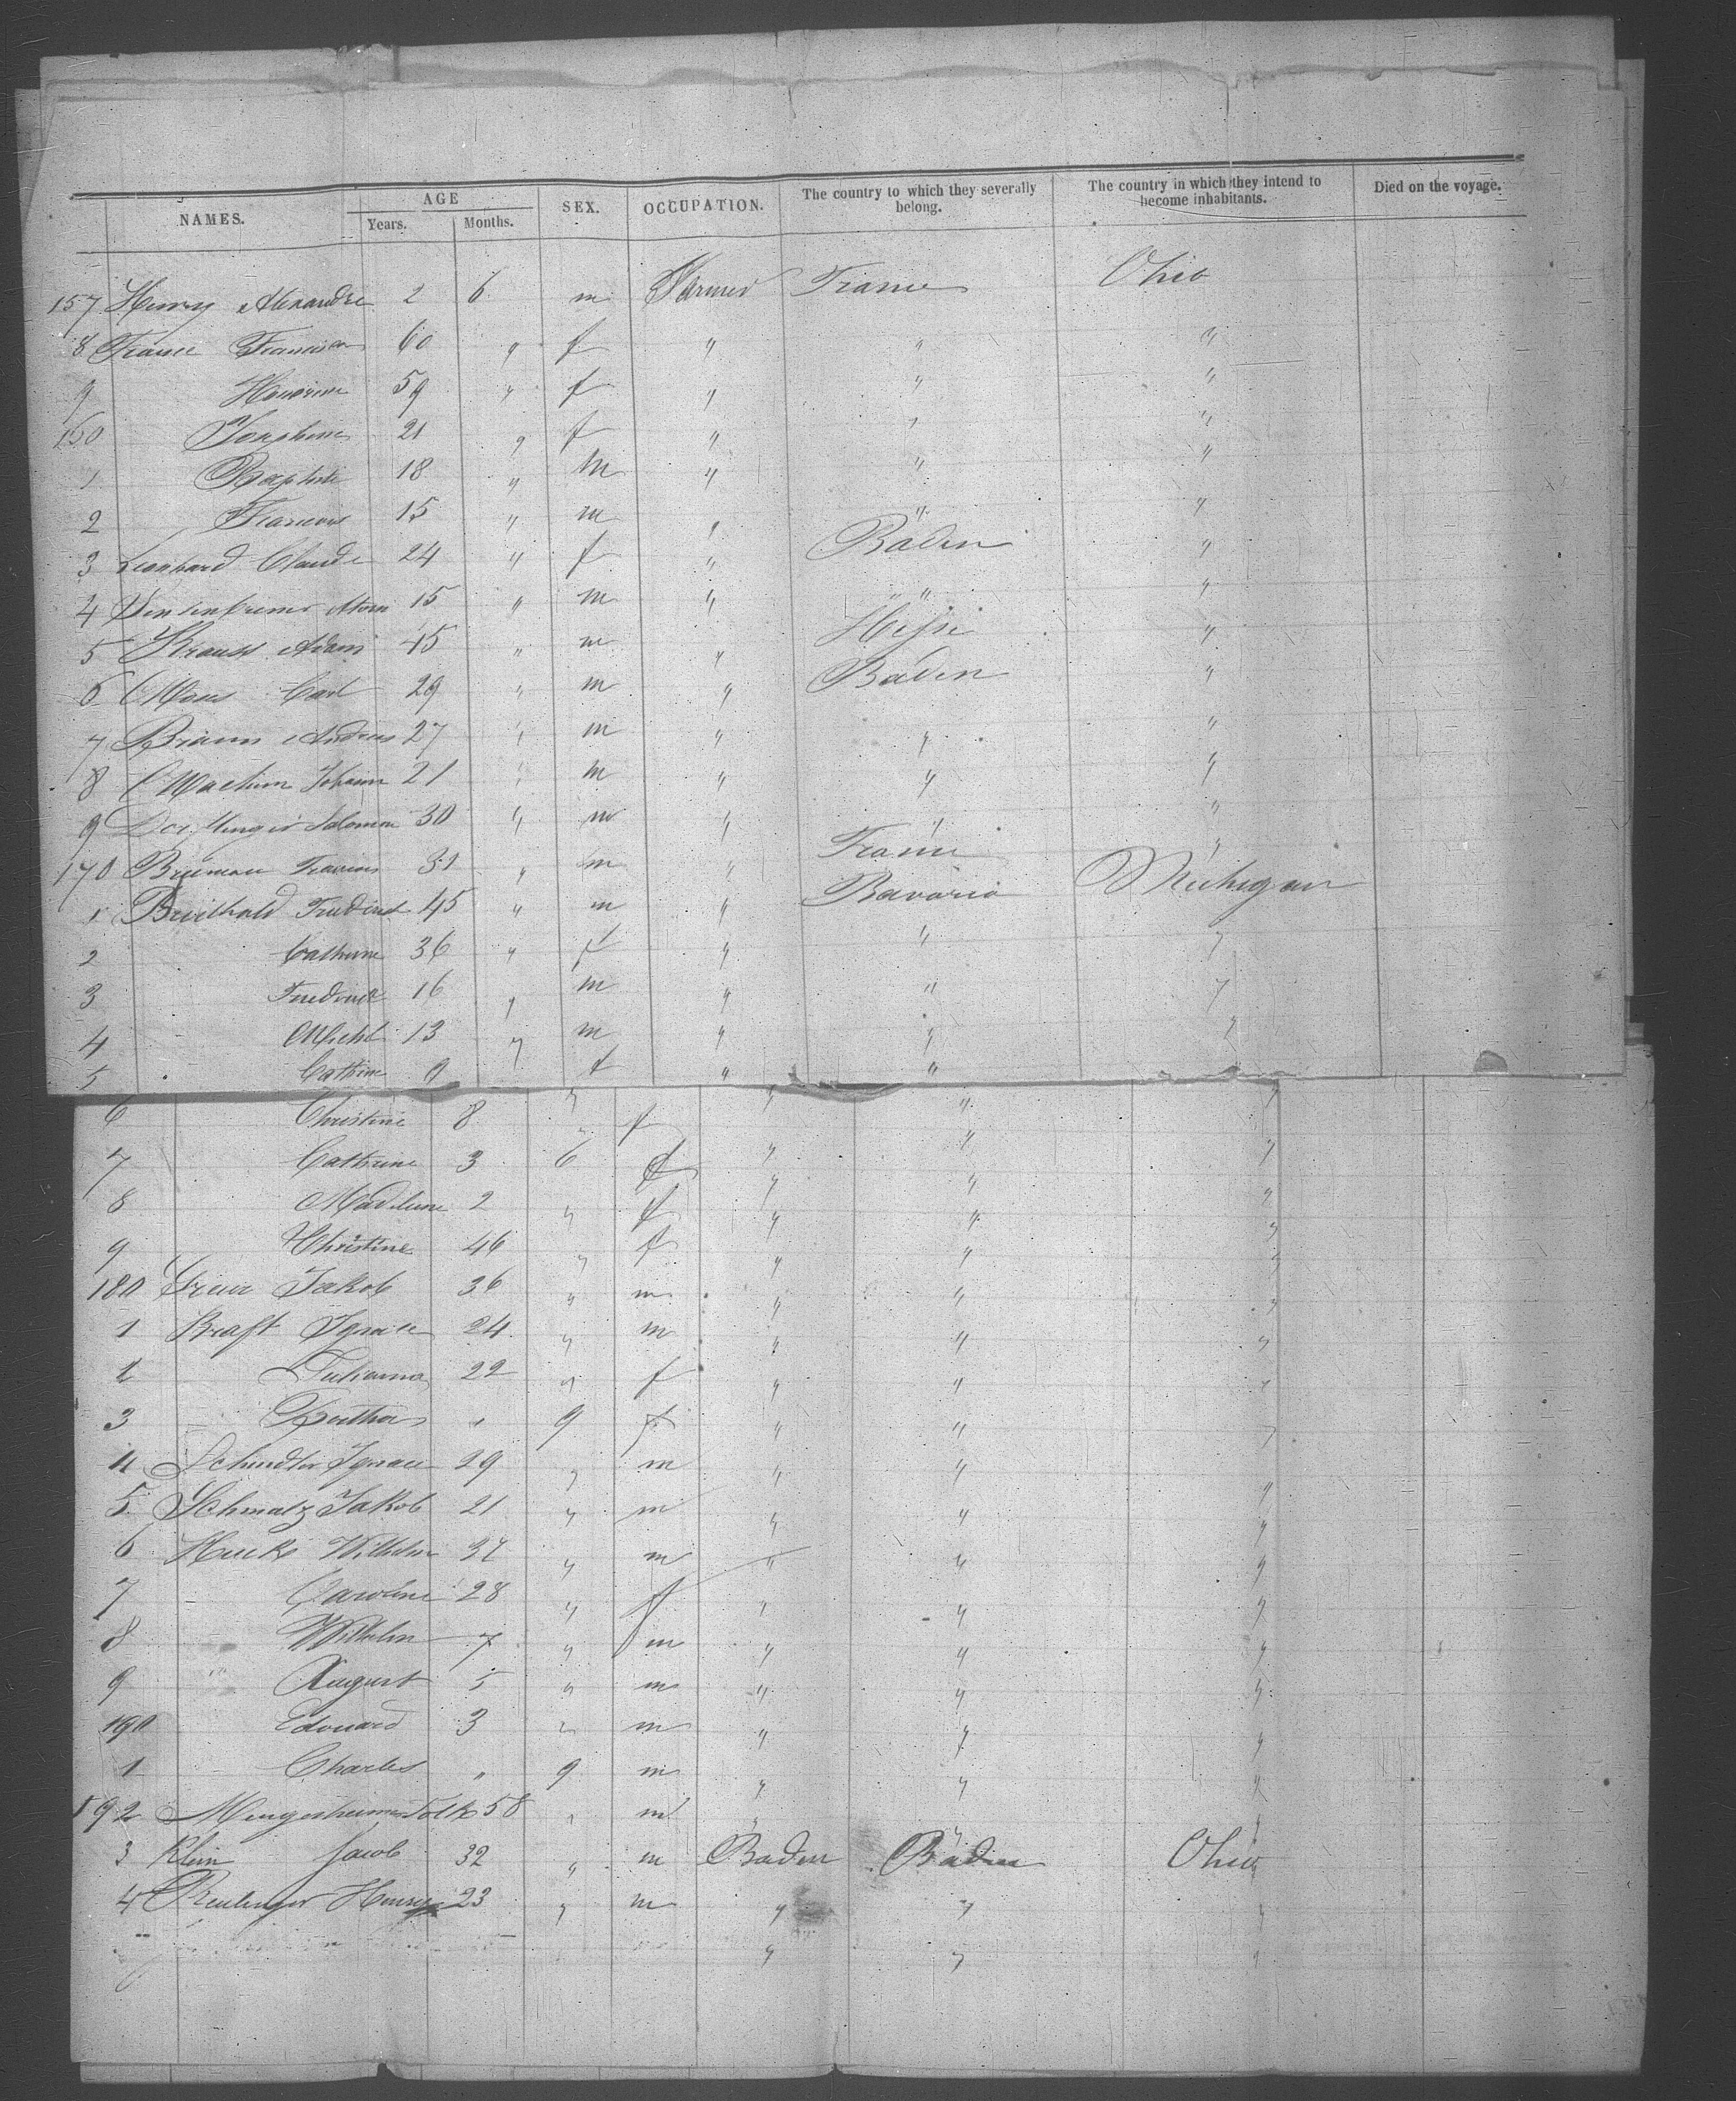 NAMES. AGE Years. Months. SEX. OCCUPATION. The country to which they severally belong. The country in which they intend to become inhabitants. Died on the voyage.
157 Henry Alexandre 2 6 m Farmer France Ohio
8 France 60 " f " " "
9 59 " f " " "
160 Josephine 21 " f " " "
1 Baptiste 18 " m " " "
2 Francois 15 " m " " "
3 Leonhard Claude 24 " f " Baden "
4 15 " m " " "
5 Krauss Adam 45 " m " Hesse "
6 Carl 29 " m " Baden "
7 Braun Andreas 27 " m " " "
8 Johann 21 " m " " "
9 Salomon 30 " m " " "
170 Francois 31 " m " France "
1 45 " m " Bavaria Michigan
2 Catherine 36 " f " " "
3 Frederick 16 " m " " "
4 Michl 13 " m " " "
5 Cathrine 9 f " "
6 Christine 8 " f " " "
7 Cathrine 3 6 f " " "
8 Madelene 2 " f " " "
9 Christine 46 " f " " "
180 Jakob 36 " m " " "
1 Kraft Ignace 24 " m " " "
2 Julianna 22 " f " " "
3 Bertha " 9 f " " "
4 Schindler Ignace 29 " m " " "
5 Schmalz Jakob 21 " m " " "
6 Wilhelm 37 " m " " "
7 Caroline 28 " f " " "
8 Wilhelm 7 " m " " "
9 " August 5 " m " " "
190 Edouard 3 " m " " "
1 Charles " 9 m " " "
192 58 " m " " "
3 Klein Jacob 32 " m Baden Baden Ohio
4 Henry 23 " m " " "
" " "
6